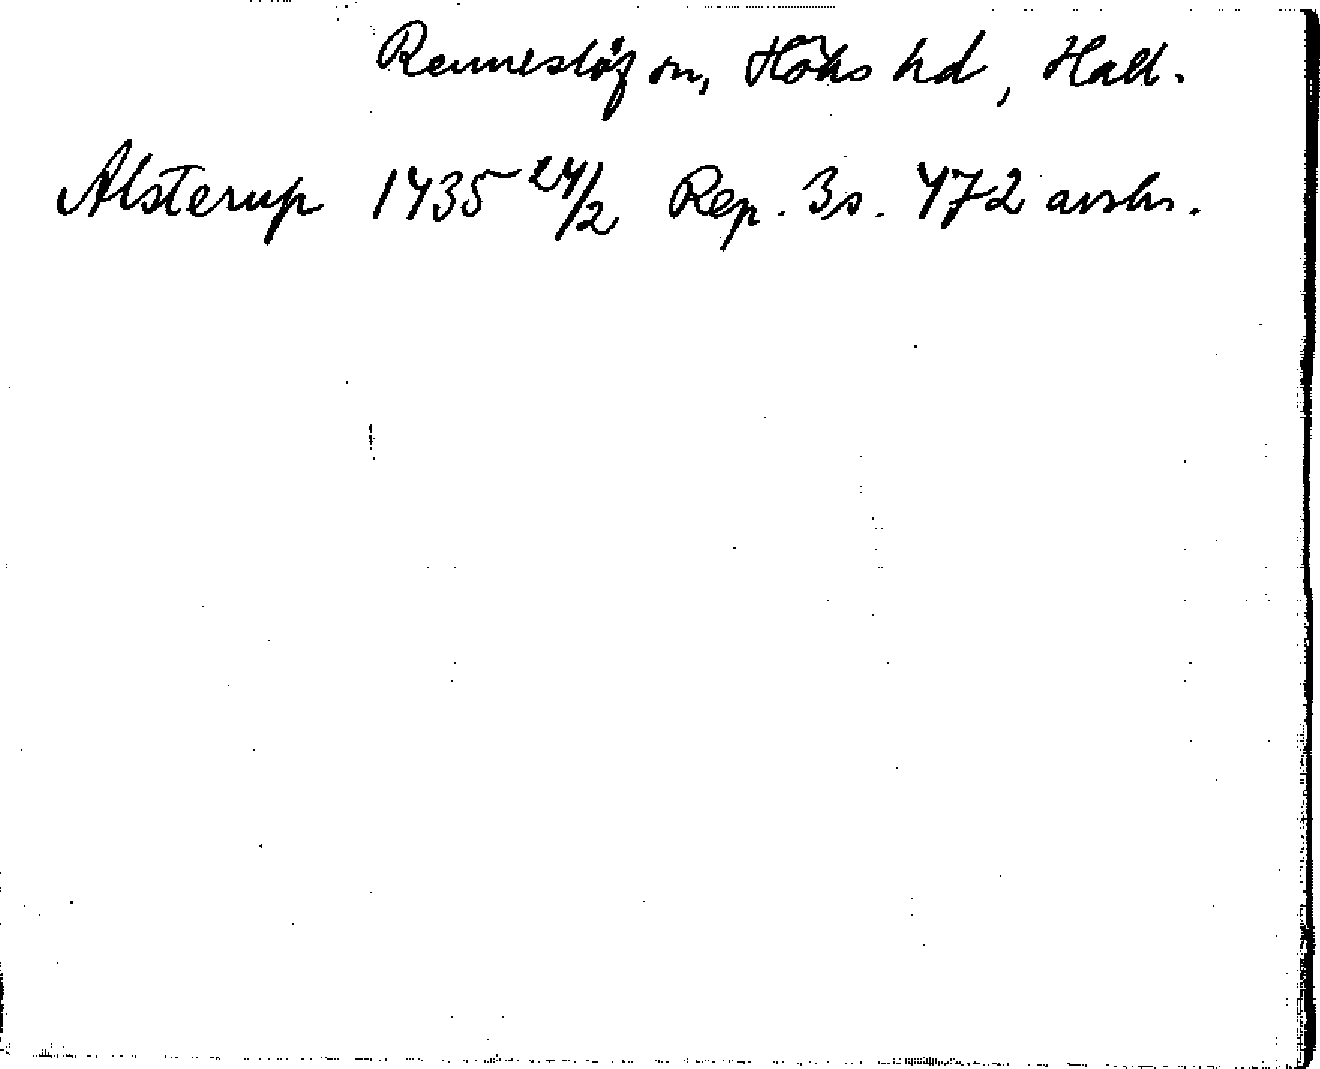 Renneslöf sn, Höks hd, Hall.
Alsterup 1435 24/2 Rep. 3 s. 472 avskr.